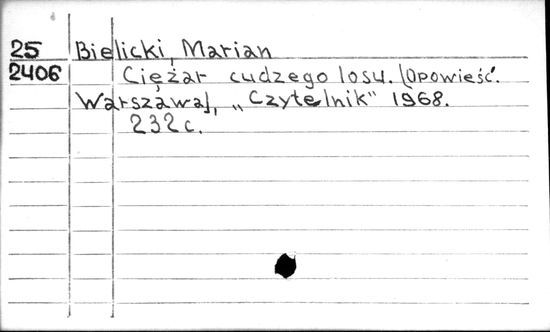 25 Bielicki, Marian
2406 Ciężar cudzego losu. (Opowieść.
Warszawa), „Czytelnik" 1968.
232 c.